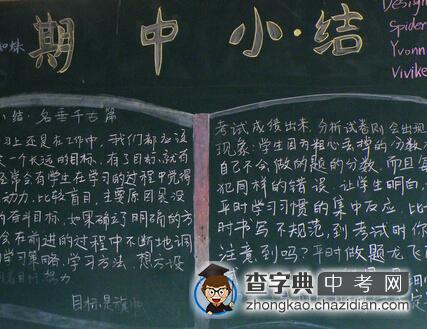 期中小结
Design
Spider
Yvonn
Vivike
蜘蛛
小结·名垂千古篇
习上还是在工作中,我们都应该
一个长远的目标,有了目标,就有
经常会有学生在学习的过程中觉得
动力,比较盲目,主要原因是没
的奋斗目标,如果确定了明确的方
会在前进的过程中不断地调
学习策略,学习方法,想方设
着目标努力
目标是
考试成绩出来,分析试卷则会出现
现象:学生因为粗心丢掉的分数
自己不会做的题的分数,而且每
犯同样的错误,让学生明白
平时学习习惯的集中反应,比
时书写不规范,到考试时你
注意到吗?平时做题龙飞
查字典中考网
www.chazidian.com